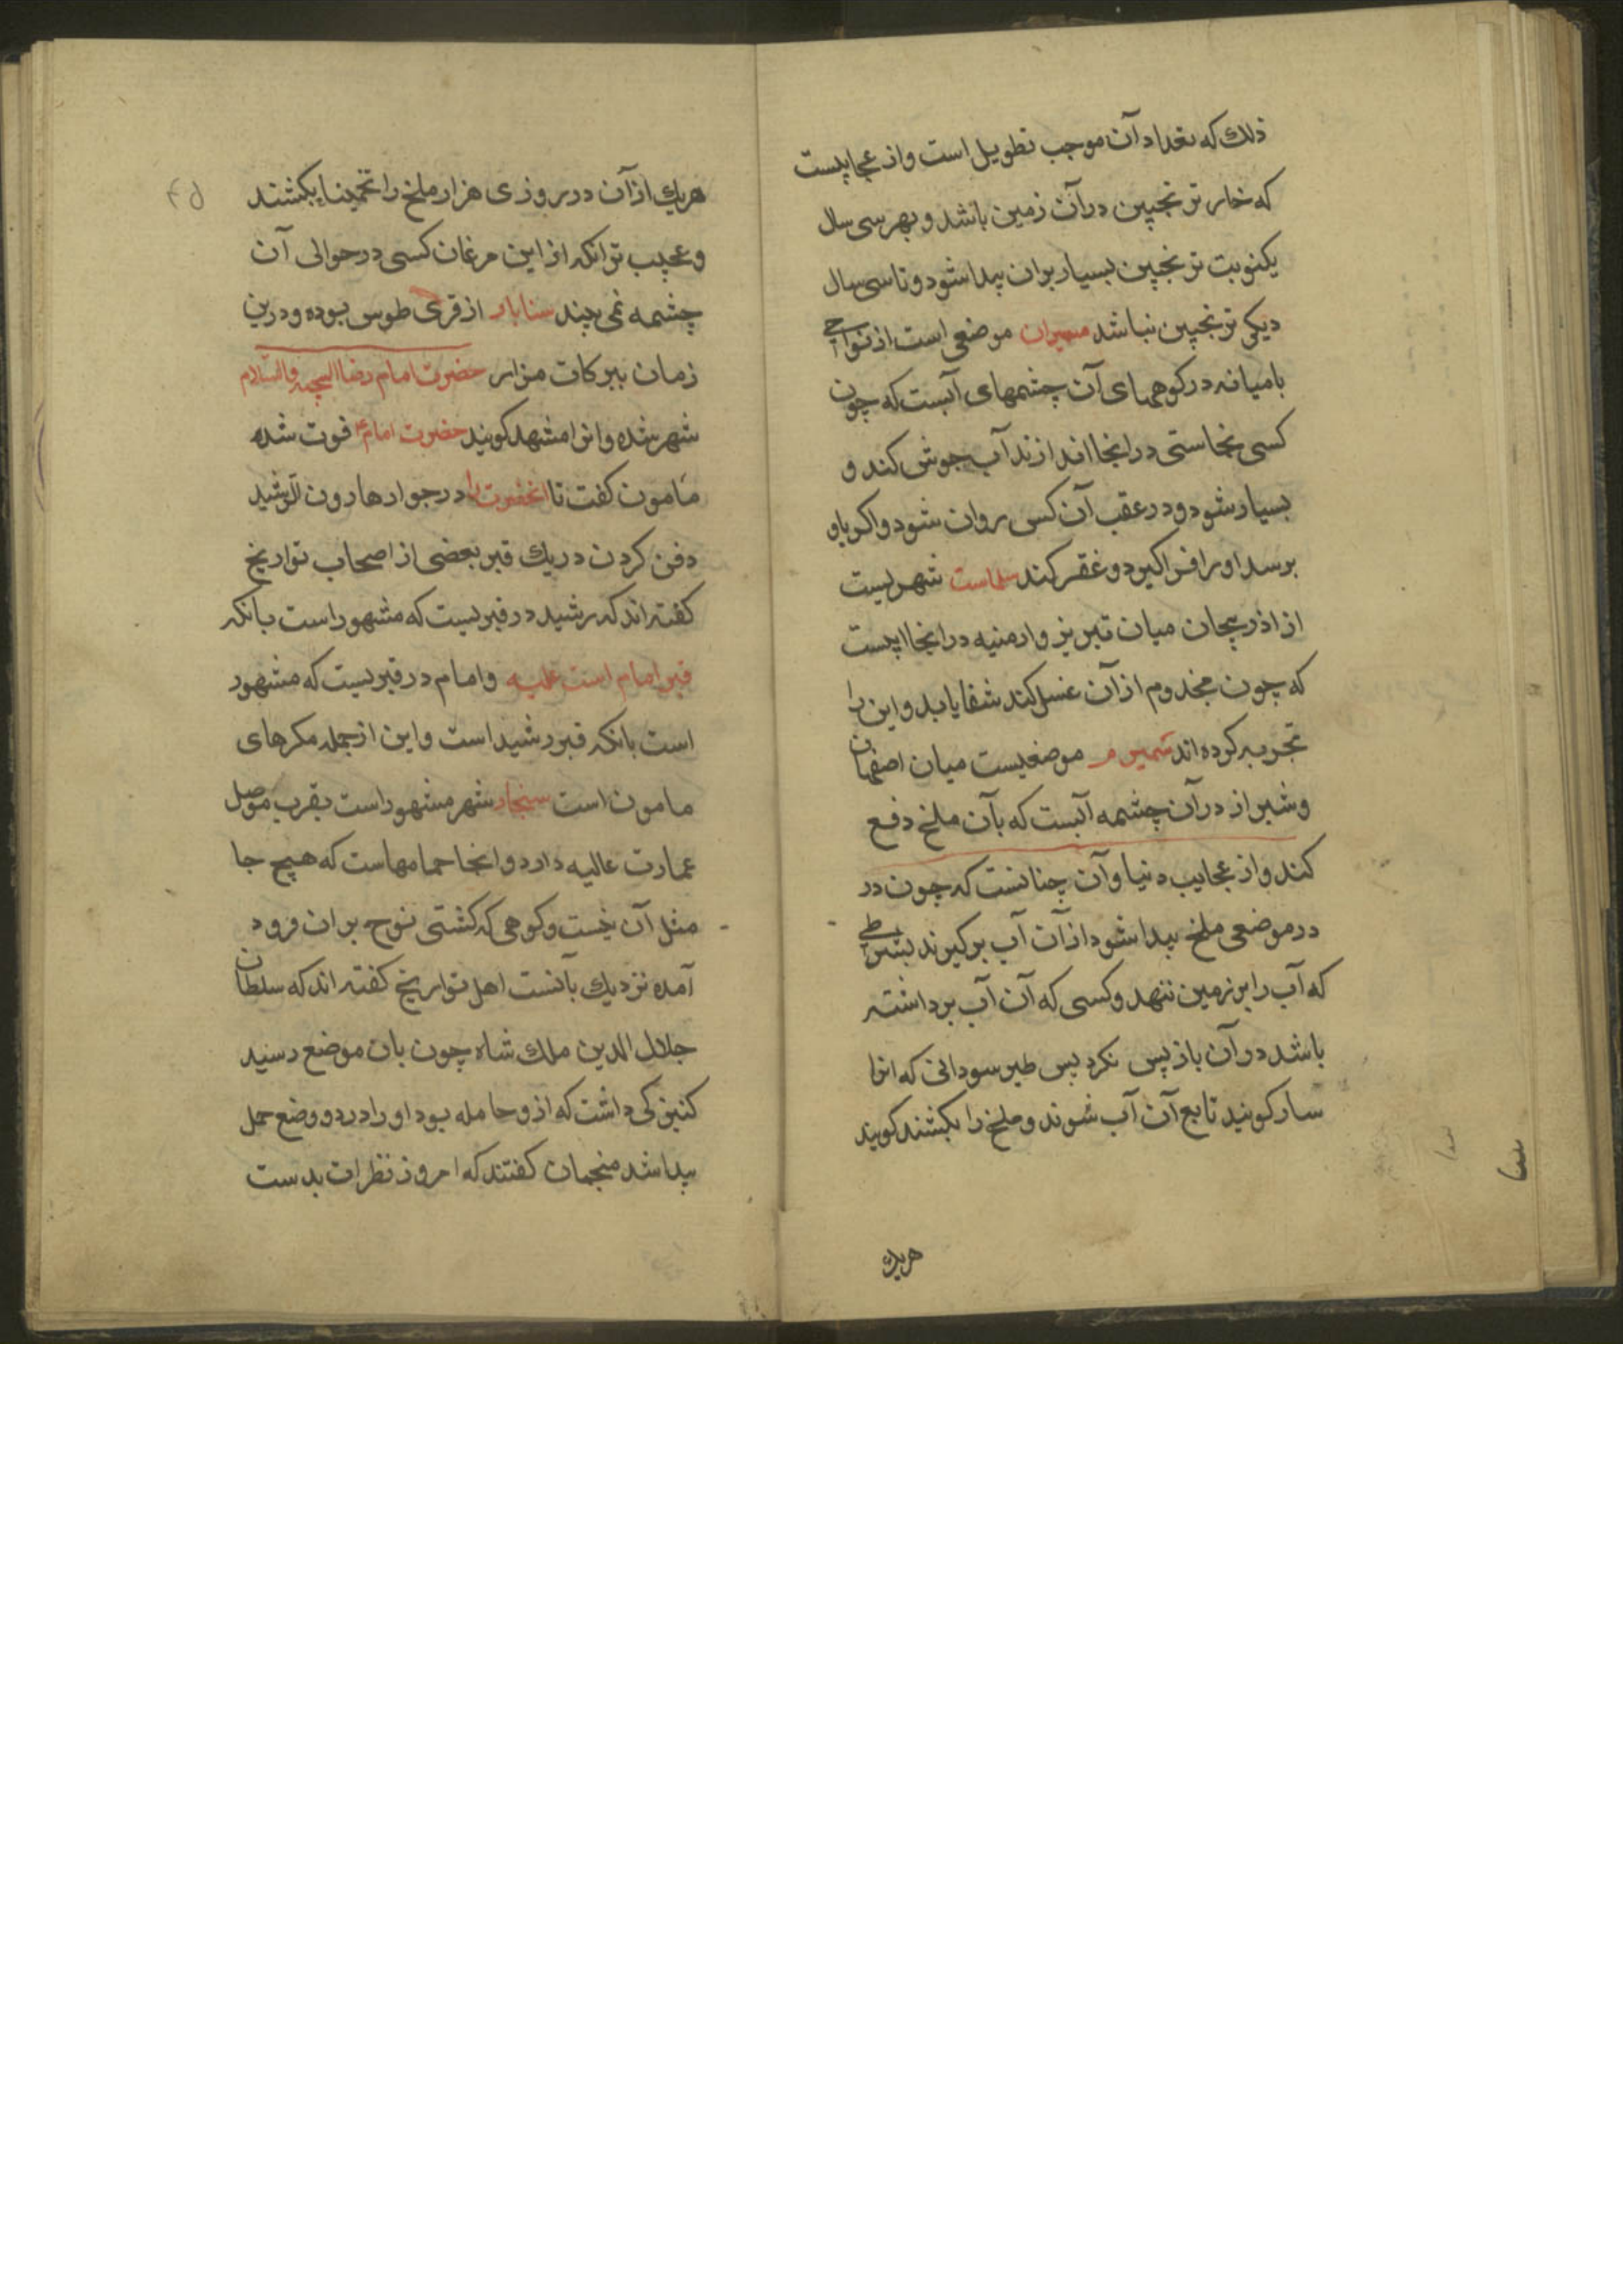 ذلك كه تعداد آن موجب تطويل است و از عجايبست
كه خار ترنجبين در آن زمين باشد و بهر سی سال
يكنوبت ترنجبين بسيار بران پيدا شود و تا سی سال
ديكر ترنجبين نباشد سميران موضعی است از نواحی
باميانه در كوههای آن چشمهای آبست كه چون
كسی نجاستی در انجا اندازند آب جوش كند و
بسيار شود و در عقب آن كس روان شود و اكر باو
برسد او را فراكيرد و غقر كند سلماست شهريست
از اذربيجان ميان تبريز و ارمنيه در انجا ابيست
كه چون مجذوم از آن غسل كند شفا يابد و اين را
تجربه كرده اند سميرم موضعيست ميان اصفهان
و شيراز در آن چشمه آبست كه بآن ملخ دفع
كنند و از عجايب دنيا و آن چنانست كه چون در
در موضعی ملخ پيدا شود از آن آب بركيرند بشرطی
كه آب را بر زمين ننهد و كسی كه آن آب برداشته
باشد در آن باز پس نكرد پس طير سودانی كه انرا
سار كويند تابع آن آب شوند و ملخ را بكشند كويند
هريك
۴۵
هريك از آن در روزی هزار ملخ را تخمينا بكشند
و عجيب تر انكه از اين مرغان كسی در حوالی آن
چشمه نمی بيند سناباد از قری طوس بوده و درين
زمان ببركات مزار حضرت امام رضا التحيه والسلام
شهر شده و انرا مشهد كويند حضرت امام ع فوت شده
مامون كفت تا انحضرت را در جوار هارون الرشيد
دفن كردن در يك قبر بعضی از اصحاب تواريخ
كفته اند كه رشيد در قبريست كه مشهور است بانكه
قبر امام است عليه و امام در قبريست كه مشهور
است بانكه قبر رشيد است و اين از جمله مكرهای
مامون است سنجار شهر مشهور است بقرب موصل
عمارت عاليه دارد و انجا حمامهاست كه هيچ جا
مثل آن نيست و كوهی كه كشتی نوح بران فرود
آمده نزديك بآنست اهل تواريخ كفته اند كه سلطان
جلال الدين ملك شاه چون بان موضع رسيد
كنيزكی داشت كه ازو حامله بود او را درد و وضع حمل
پيدا شد منجمان كفتند كه امروز نظرات بدست